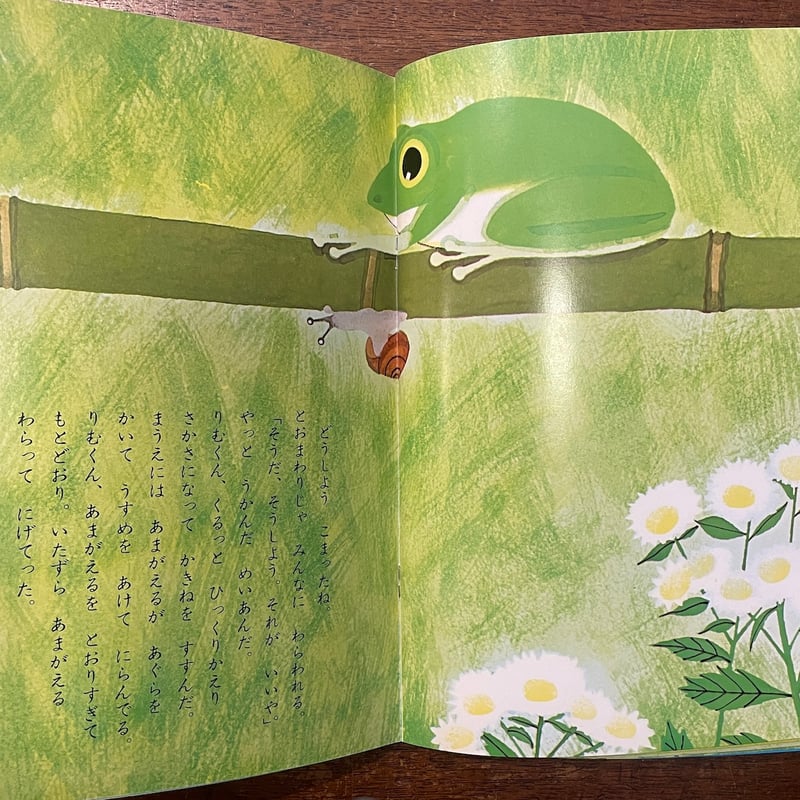 どうしよう　こまったね。
とおまわりじゃ　みんなに　わらわれる。
「そうだ、そうしよう。それが　いいや」
やっと　うかんだ　めいあんだ。
りむくん、くるっと　ひっくりかえり
さかさになって　かきねを　すすんだ。
まうえには　あまがえるが　あぐらを
かいて　うすめを　あけて　にらんでる。
りむくん、あまがえるを　とおりすぎて
もとどおり。いたずら　あまがえる
わらって　にげてった。